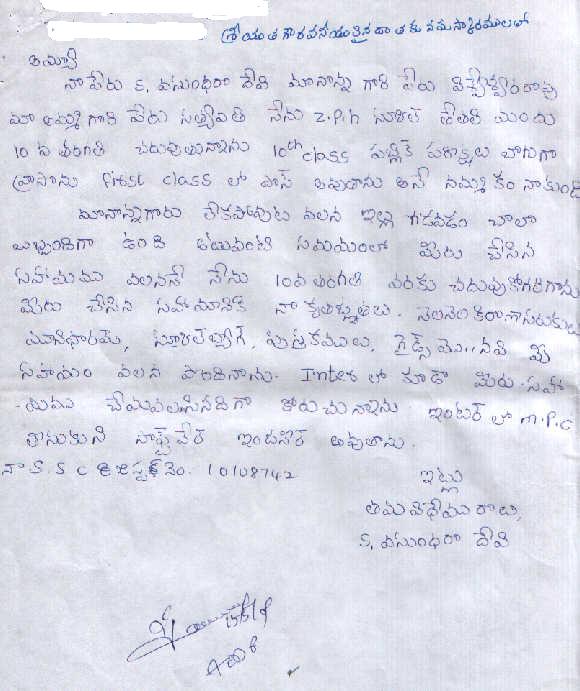 శ్రీయుత గౌరవనీయులైన దాతకు నమస్కారములతో
అమ్మా
నా పేరు S. వసుంధరా దేవి మా నాన్న గారి పేరు విశ్వేశ్వరరావు
మా అమ్మ గారి పేరు సత్యవతి నేను Z.P.H స్కూల్ నందు
10 వ తరగతి చదువుతున్నాను 10th class పబ్లిక్ పరీక్షలు బాగుగా
వ్రాసాను first class లో పాస్ అవుతాను అనే నమ్మకం నాకుంది
మా నాన్నగారు లేకపోవుట వలన ఇల్లు గడవడం చాలా
ఇబ్బందిగా ఉంది అటువంటి సమయంలో మీరు చేసిన
సహాయము వలననే నేను 10వ తరగతి వరకు చదువుకోగలిగాను
మీరు చేసిన సహాయానికి నా కృతజ్ఞతలు. నెలనెల కిరాణాసరుకులు
యూనిఫారమ్, స్కూల్ బ్యాగ్, పుస్తకములు, గైడ్స్ మొ..నవి మీ
సహాయం వలన పొందినాను. Inter లో కూడా మీరు సహా
-యము చేయవలసినదిగా కోరుచున్నాను ఇంటర్ లో M.P.C
తీసుకుని సాఫ్ట్వేర్ ఇంజనీర్ అవుతాను.
నా S S C రిజిస్టర్ నెం. 10108742
ఇట్లు
తమ విధేయురాలు,
S. వసుంధరా దేవి